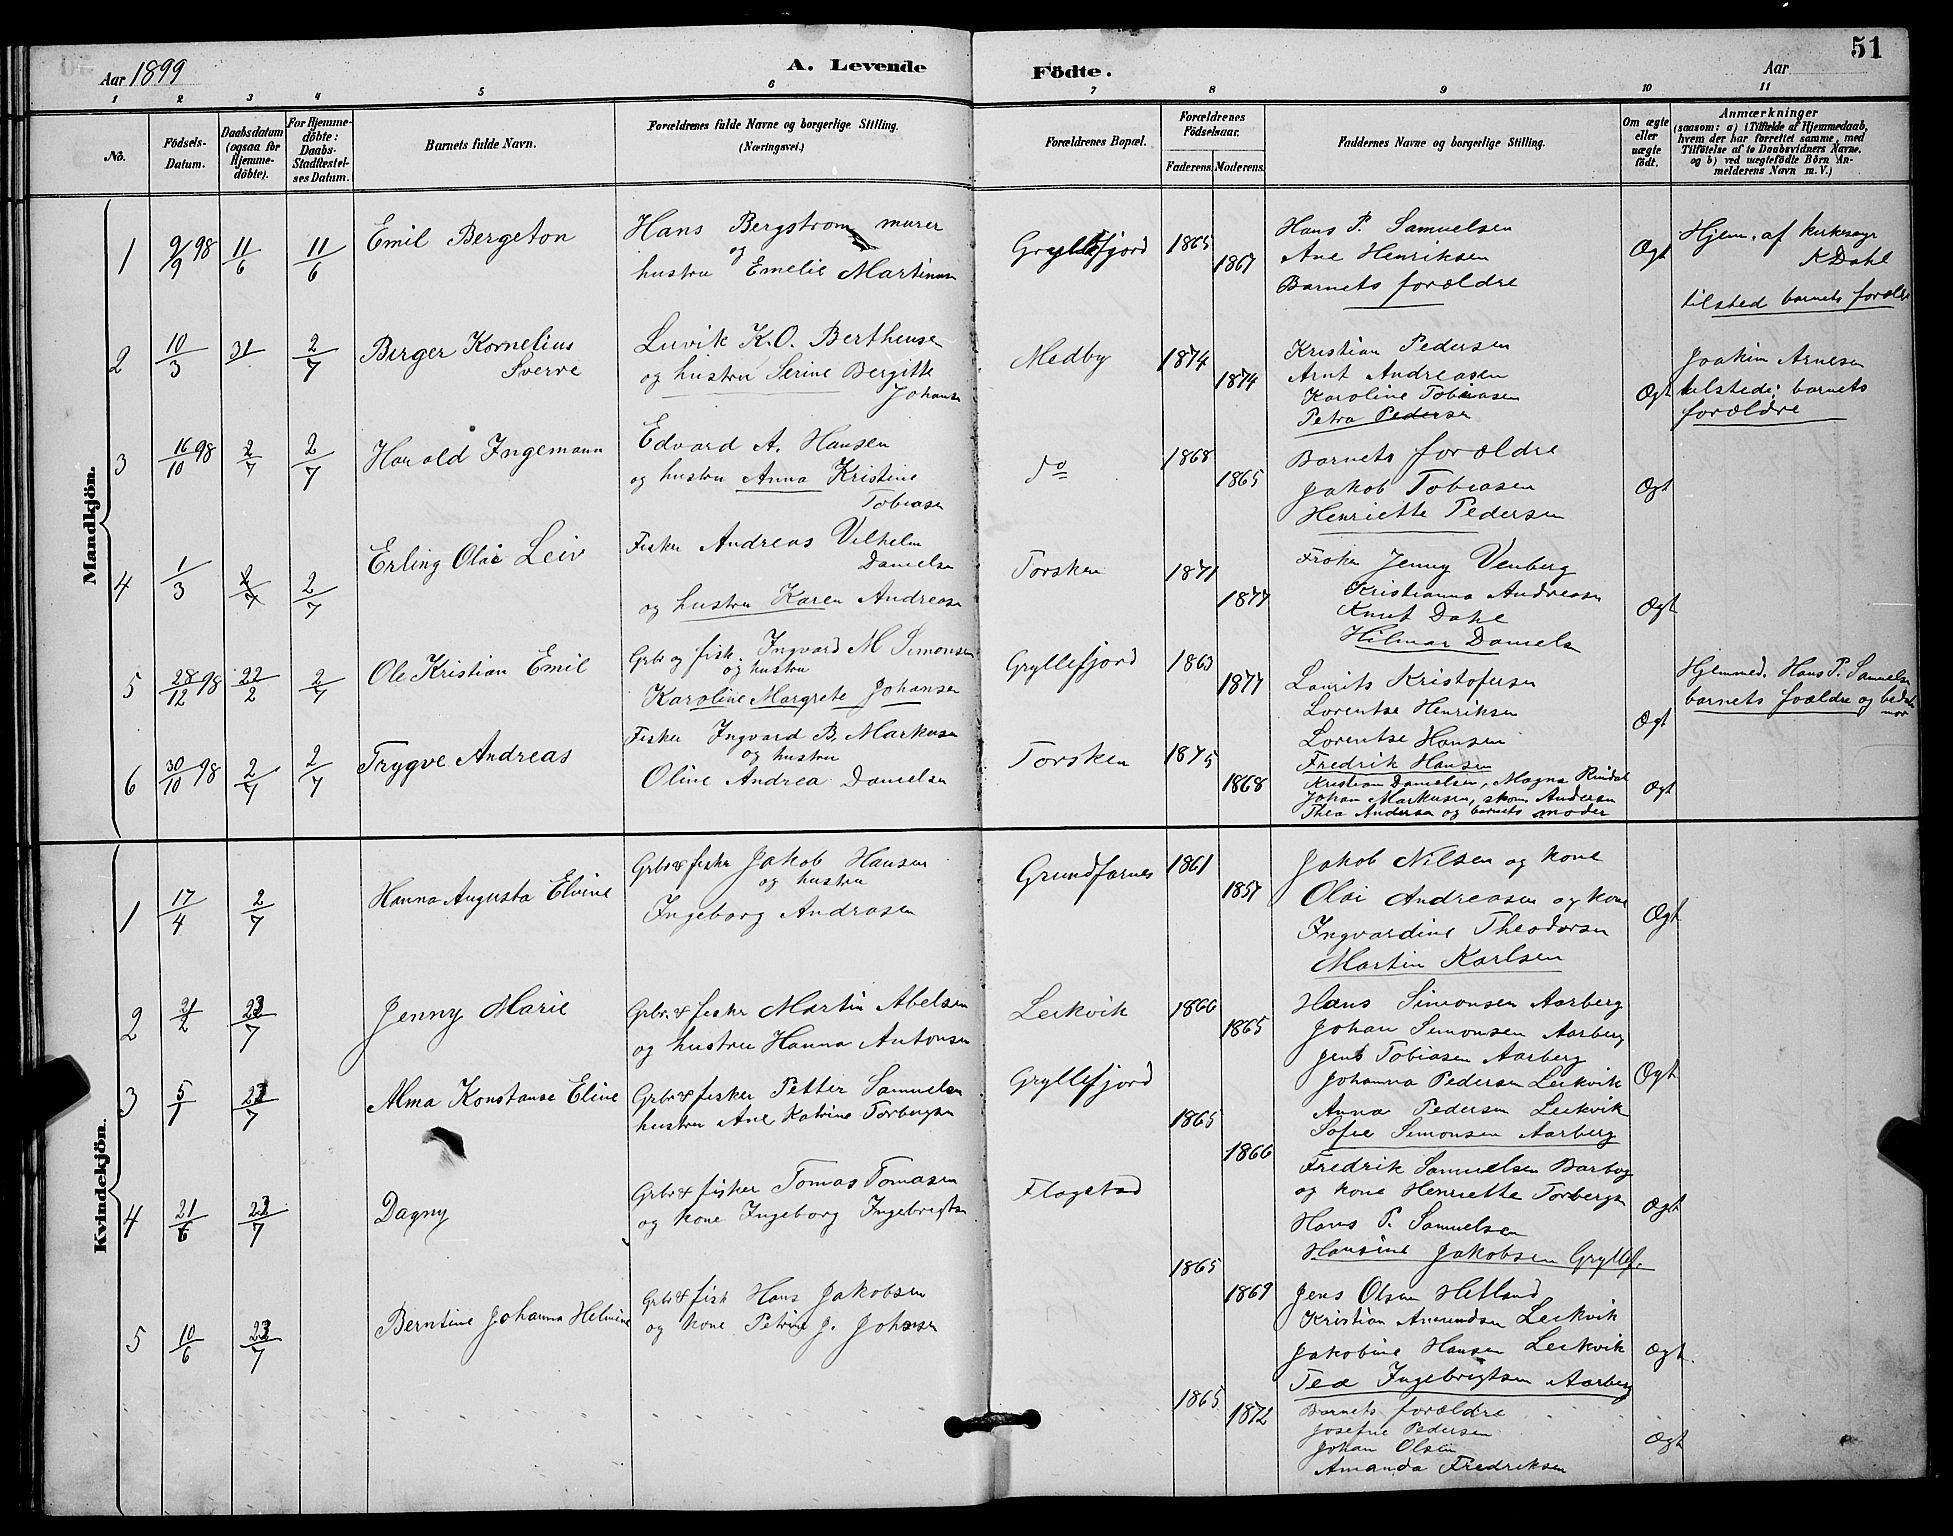 Aar 1899
A. Levende Födte.
Aar
51
1 2 3 4 5 6 7 8 9 10 11
No.
Födsels-Datum.
Daabsdatum (ogsaa for Hjemme-döbte).
For Hjemme-döbte: Daabs-Stadfæstel-ses Datum.
Barnets fulde Navn.
Forældrenes fulde Navne og borgerlige Stilling.
(Næringsvei.)
Forældrenes Bopæl.
Forældrenes Födselsaar.
Faderens. Moderens.
Faddernes Navne og borgerlige Stilling.
Om ægte eller uægte födt.
Anmærkninger
(saasom: a) i Tilfælde af Hjemmedaab, hvem der har forrettet samme, med Tilföielse af to Daabsvidners Navne, og b) ved uægtefödte Börn An-melderens Navn m. V.)
Mandkjön.
1 9/9 98 11/6 11/6 Emil Bergeton
Hans Bergstrom murer
og
hustru Emelie Martinus
Gryllefjord 1865 1867
Hans P. Samuelsen
Ane Henriksen
Barnets forældre
Ægt
Hjem. af kirkesgr
K Dahl
tilsted barnets foræld
2 10/3 31 2/7 Berger Kornelius
Sverre
Luvik K.O. Berthensen
og hustru Serine Bergitte
Johans
Medby 1874 1874
Kristian Pedersen
Arnt Andreasen
Karoline Tobiasen
Petra Pedersen
Ægt
Joakim Arnesen
tilstede: barnets
forældre
3 16/10 98 2/7 2/7 Harald Ingemann
Edvard A. Hansen
og hustru Anna Kristine
Tobiasen
do 1868 1865
Barnets forældre
Jakob Tobiasen
Henriette Pedersen
Ægt
4 1/3 2/7 2/7 Erling Olai Leiv
Fisker Andreas Vilhelm
Danielsen
og hustru Karen Andreasn
Torsken 1871 1877
Frøken Jenny Venberg
Kristianna Andreasen
Knut Dahl
Hilmar Daniels
Ægt
5 28/12 98 22/2 2/7 Ole Kristian Emil
Grbr og fisk. Ingvard M Simonsen
og hustru
Karoline Margrete Johansen
Gryllefjord 1863 1877
Laurits Kristofersen
Lorentse Henriksen
Lorentse Hansen
Fredrik Hansen
Ægt
Hjemmed. Hans P. Samuelsen
barnets forældre og bedste
mor
6 30/10 98 2/7 2/7 Trygve Andreas
Fisker Ingvard B. Markusen
og hustru
Oline Andrea Danielsen
Torsken 1875 1868
Kristian Danielsen, Magna Rindal
Johan Markusen, skom. Andersen
Thea Andersen og barnets moder
Ægt
Kvindekjön.
1 17/4 2/7 Hanna Augusta Elvine
Grbr & fisker Jakob Hansen
og hustru
Ingeborg Andrasen
Grundfarnes 1861 1857
Jakob Nilsen og kone
Olai Andreasen og kone
Ingvardine Theodorsen
Martin Karlsen
Ægt
2 21/2 23/7 Jenny Marie
Grbr. & fisker Martin Abelsen
og hustru Hanna Antonsen
Leikvik 1866 1865
Hans Simonsen Aarberg
Johan Simonsen Aarberg
Jens Tobiasen Aarberg
Johanna Pedersen Leikvik
Anna Pedersen Leikvik
Sofie Simonsen Aarberg
Ægt
3 5/1 23/7 Alma Konstanse Eline
Grbr & fisker Petter Samuelsen
hustru Ane Katrine Torbergsen
Gryllefjord 1865 1866
Fredrik Samuelsen Barbog
og kone Henriette Torbergsn
Hans P. Samuelsen
Hansine Jakobsen Gryllef.
Ægt
4 21/6 23/7 Dagny
Grbr & fisker Tomas Tomasen
og kone Ingeborg Ingebrigtsn
Flagstad 1865 1869
Jens Olsen Hetland
Kristian Amundsen Leikvik
Jakobine Hansen Leikvik
Tea Ingebrigtsen Aarberg
Ægt.
5 10/6 23/7 Berntine Johanna Helmine
Grbr & fisk Hans Jakobsen
og kone Petrine J. Johansn
1865 1872
Barnets forældre
Josefine Pedersen
Johan Olsen
Amanda Fredriksen
Ægt